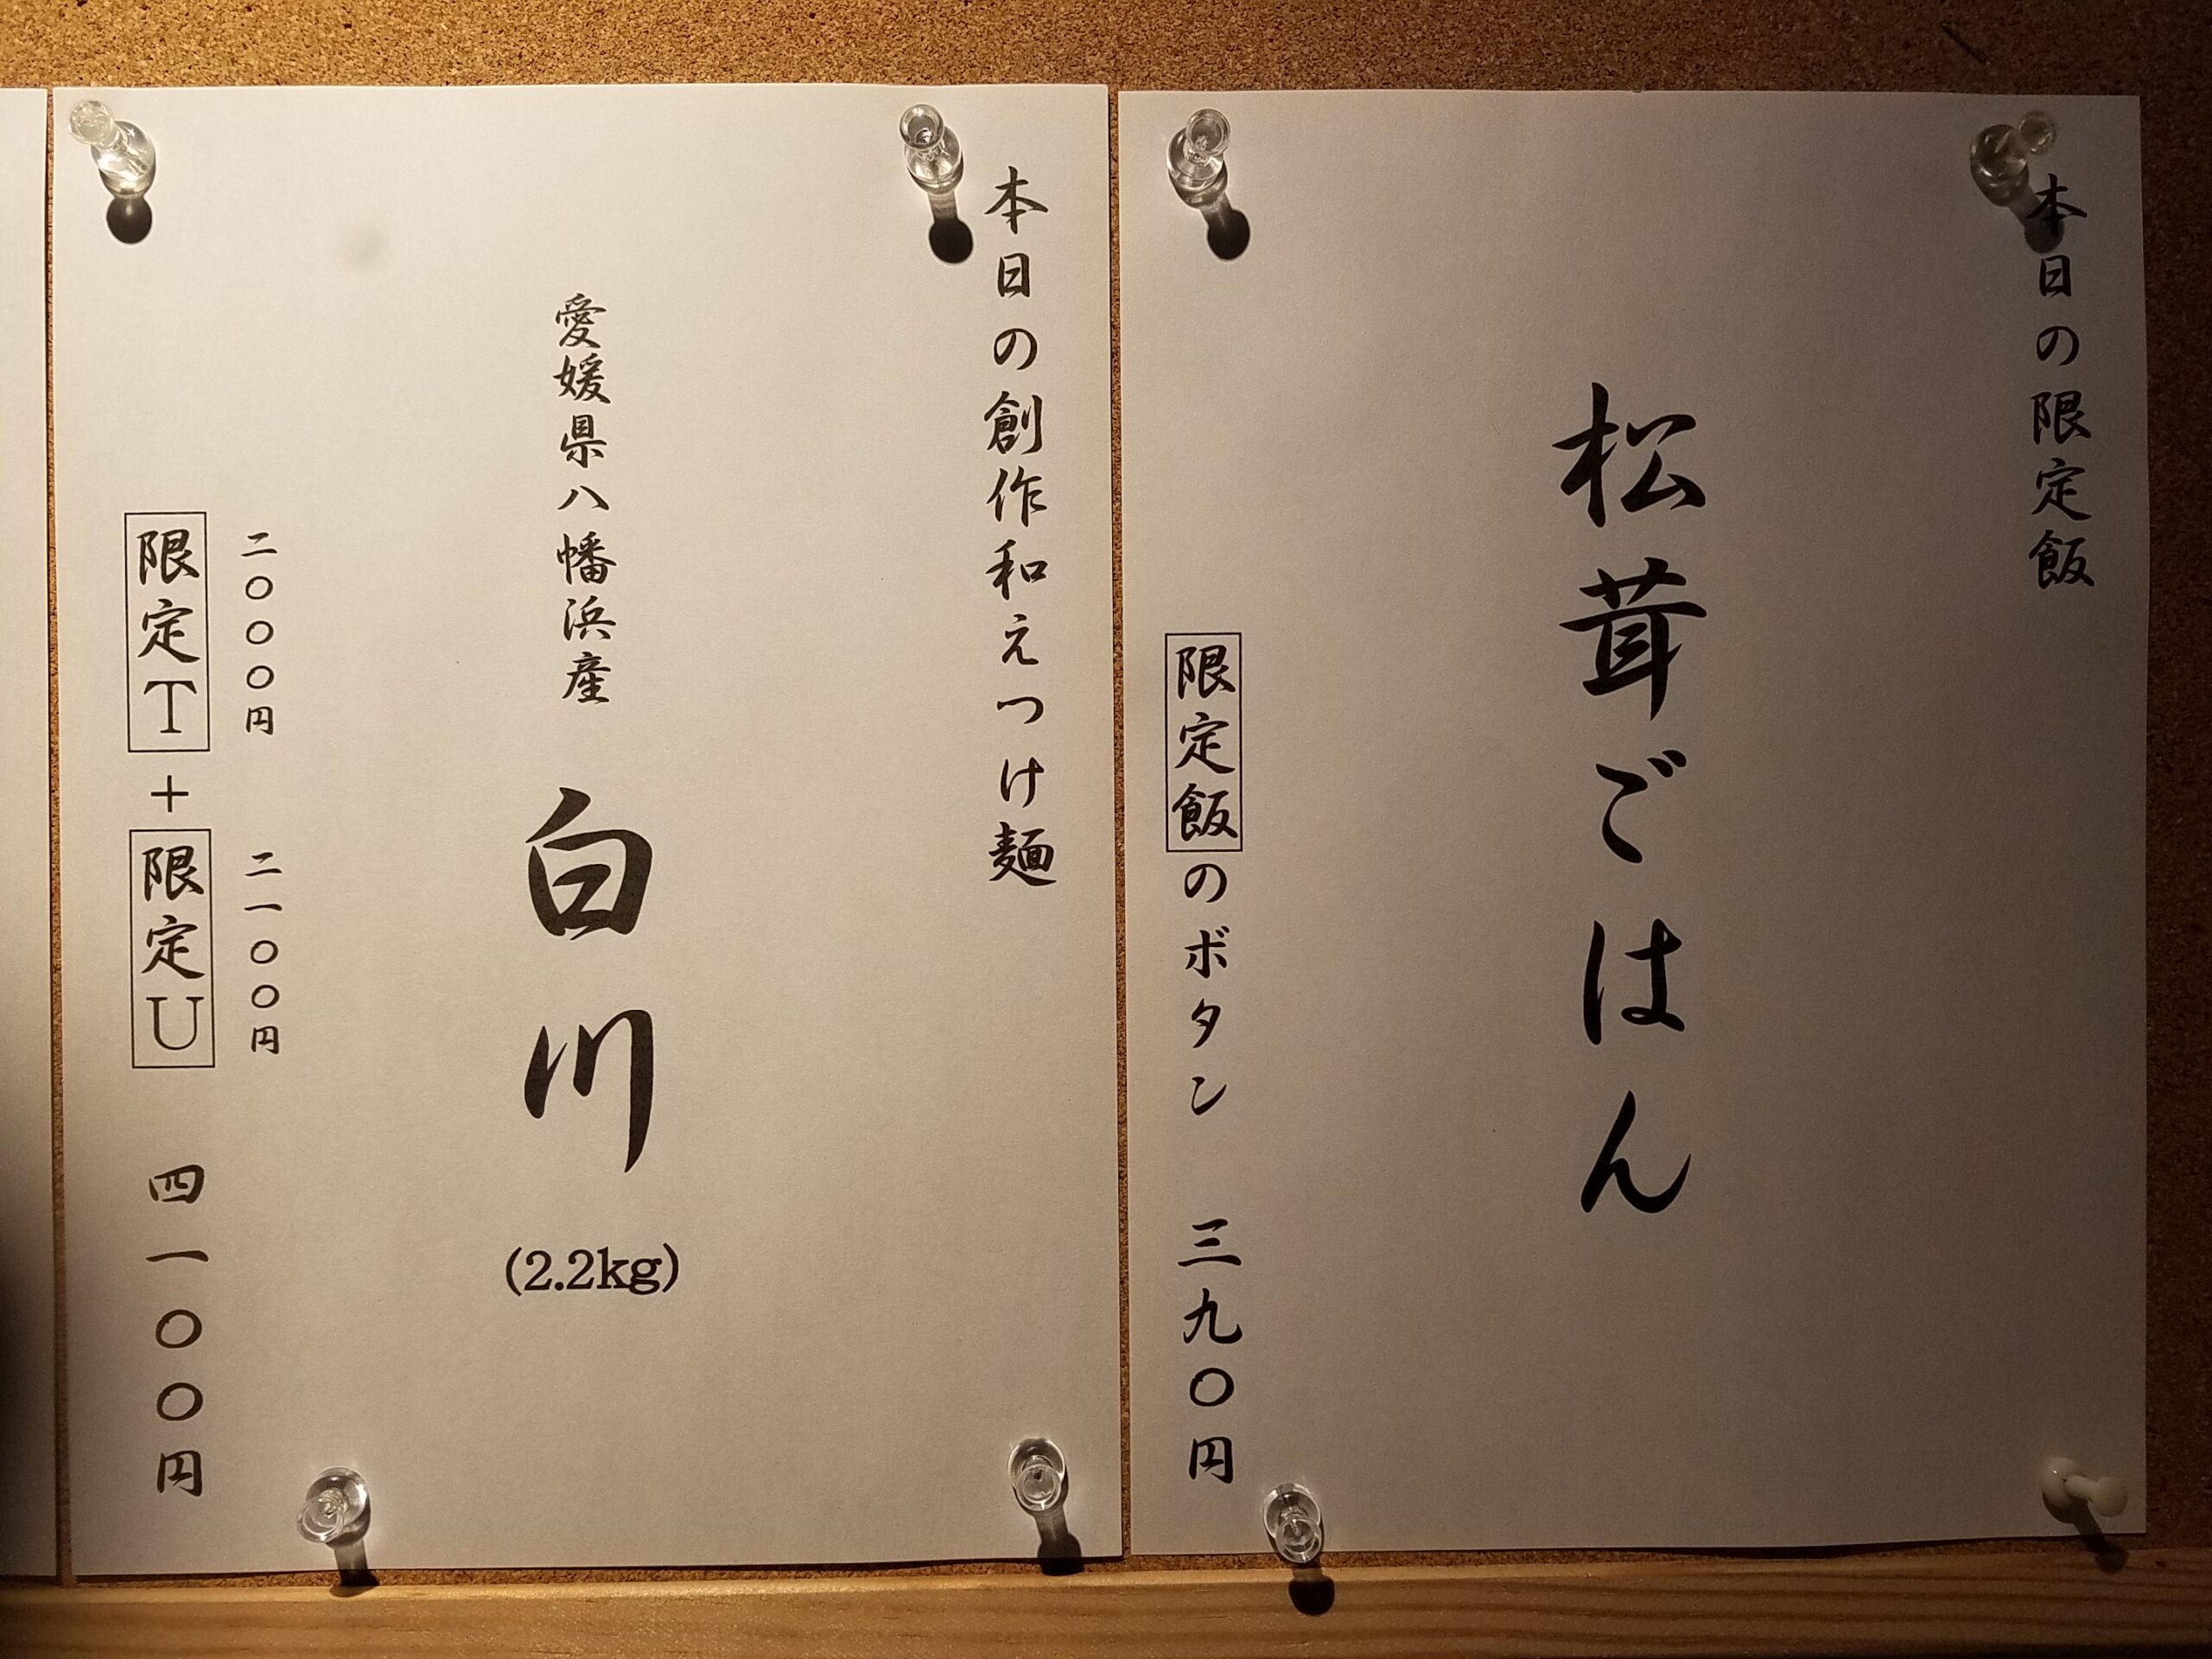 本日の限定飯
松茸ごはん
限定飯のボタン 三九〇円
本日の創作和えつけ麺
愛媛県八幡浜産 白川 (2.2kg)
二〇〇〇円 二一〇〇円
限定T+限定U 四一〇〇円